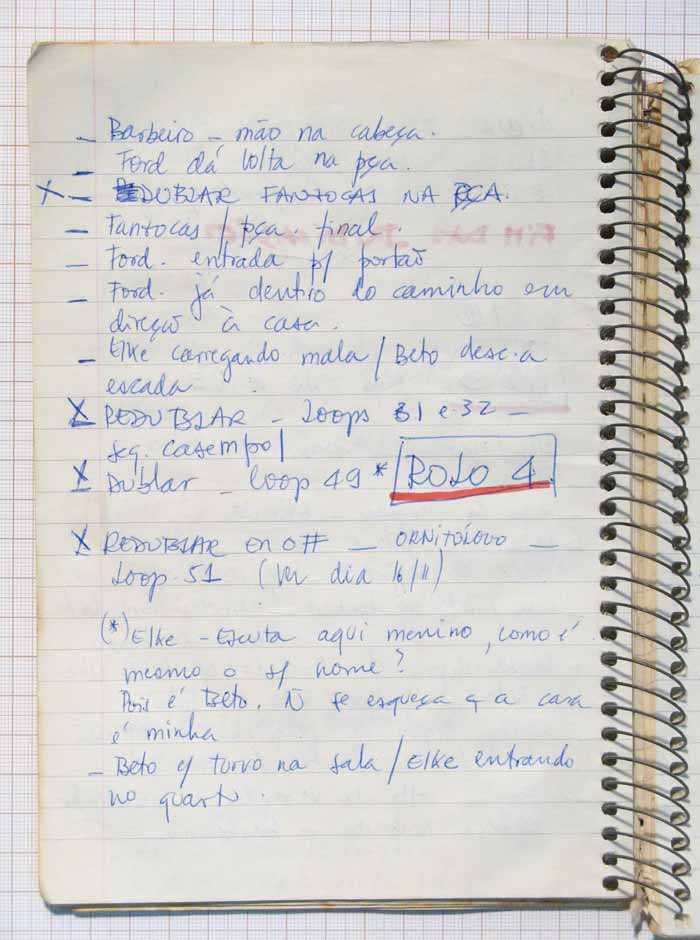 - Barbeiro - mão na cabeça.
- Ford dá volta na pça.
X - DUBLAR FANTOCAS NA PÇA.
- Fantocas / pça. final.
- Ford. entrada p/ portão
- Ford. já dentro do caminho em
direção à casa.
- Elke carregando mala / Beto desc. a
escada.
X REDUBLAR - Loops 31 e 32 -
seq.
X Dublar - loop 49 * ROLO 4
X REDUBLAR en off - ORNITÓLOGO -
Loop 51 (ver dia 16/11)
(*) Elke - Escuta aqui menino, como é
mesmo o s/ nome?
Pois é Beto. Ñ se esqueça q a casa
é minha
- Beto c/ turvo na sala / Elke entrando
no quarto.